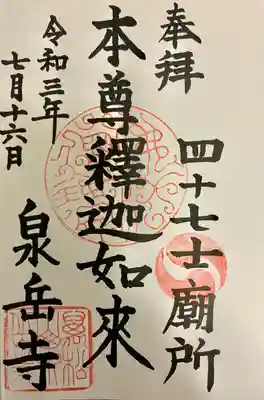 奉拝
四十七士廟所
本尊釋迦如來
令和三年
七月十六日
泉岳寺